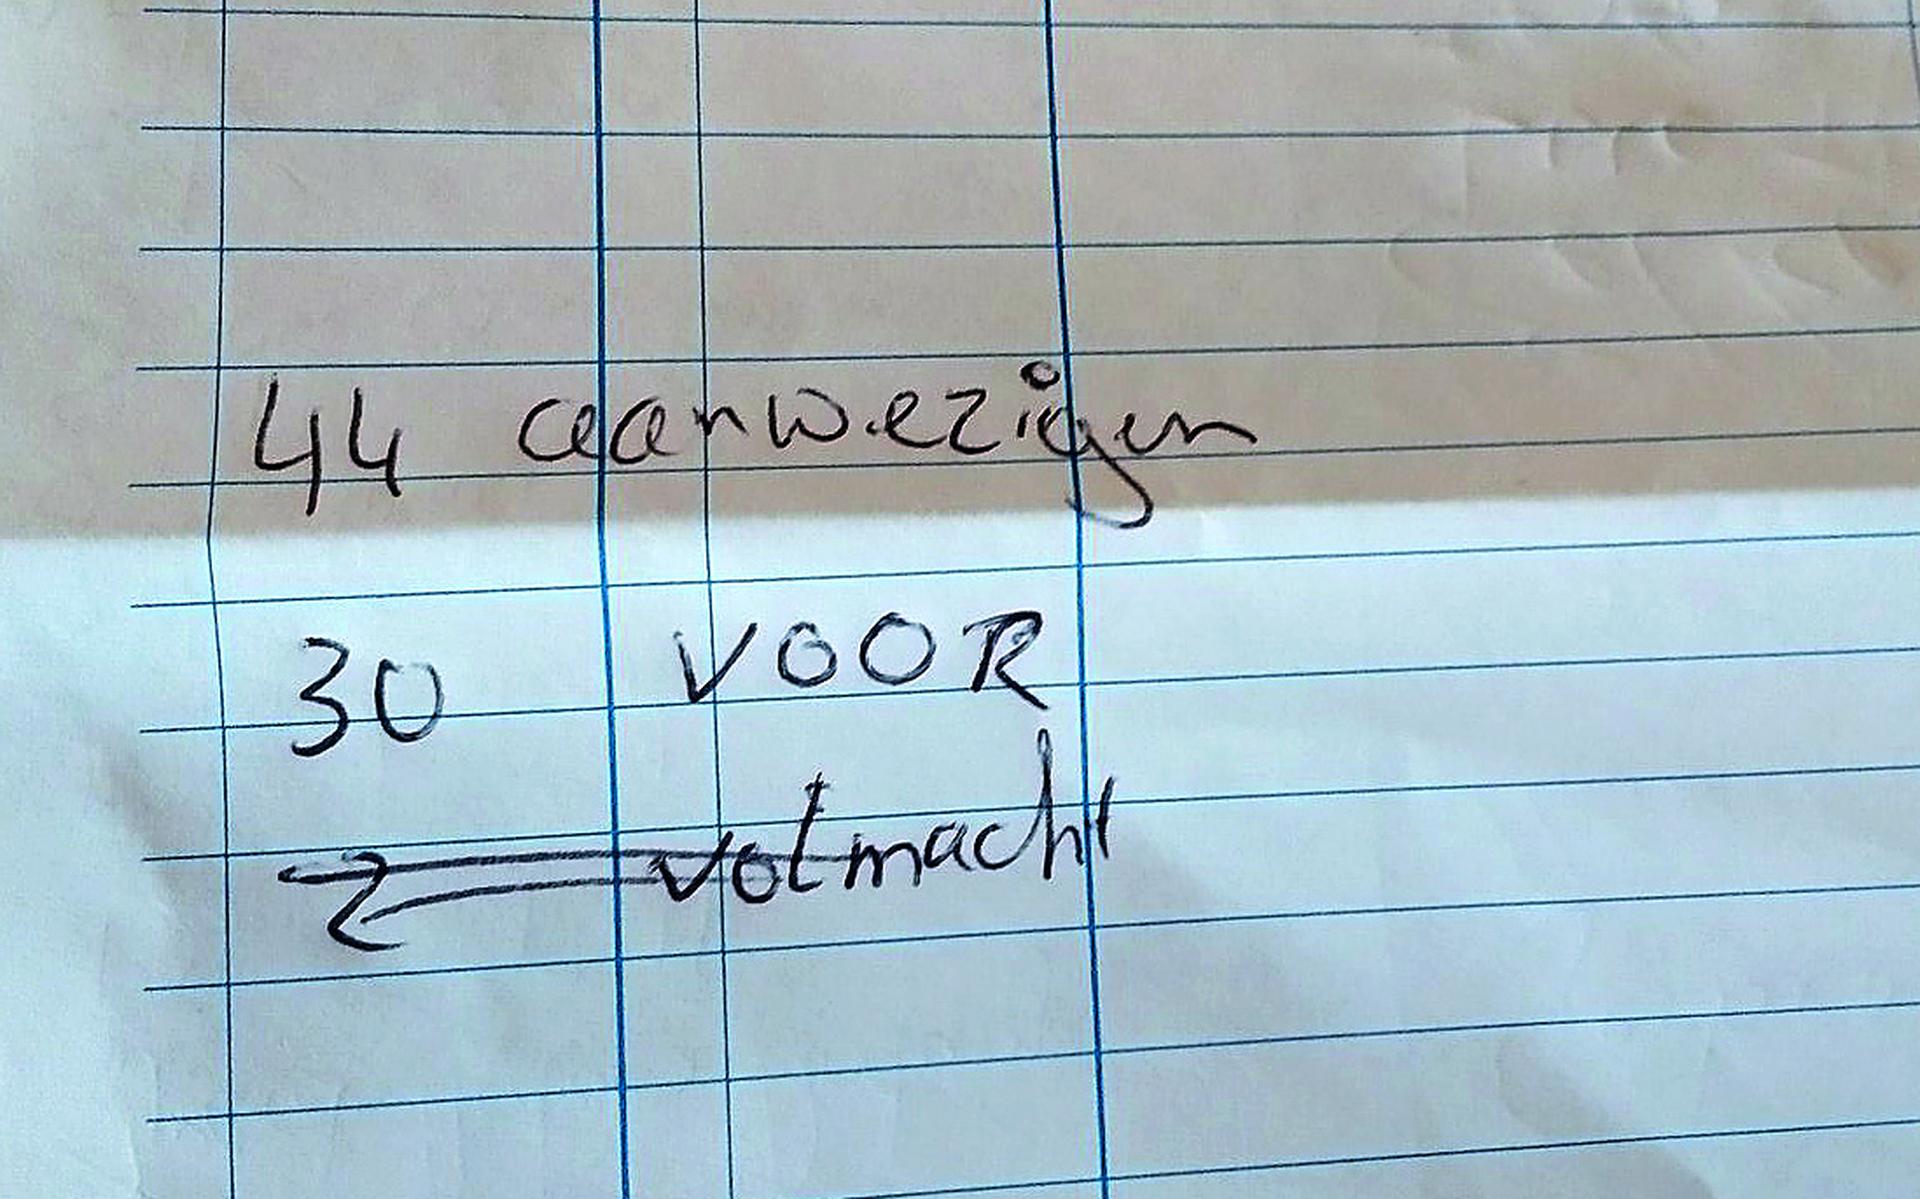 44 aanwezigen
30 VOOR
volmacht